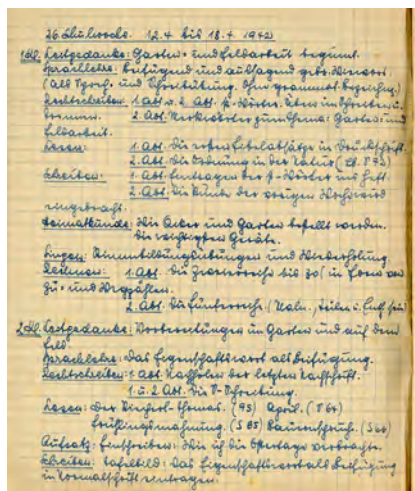 26. Schulwoche. 12.4 bis 18.4 1942
1. Kl. Leitgedanke: Garten- und Feldarbeit beginnt.
Sprachlehre: Beifügend und aussagend gebr. Wiewort.
(als Sprech- und Schreibübung. Ohne grammat. Bezeichng.)
Rechtschreiben: 1. Abt. u. 2. Abt. Wörter. Üben im Schreiben u.
2. Abt. Merkwörter zum Thema: Garten- und
Feldarbeit.
Lesen: 1. Abt. Die ersten Fibelabsätze in Druckschrift.
2. Abt. Die Ordnung in der Natur (Lb. S 92)
Schreiben: 1. Abt. Eintragen der Wörter ins Heft.
2. Abt. Die Kunde der vorigen Woche wird
eingebracht.
Heimatkunde: Wie Acker und Garten bestellt werden.
Die wichtigsten Geräte.
Singen: Stimmbildungsübungen und Wiederholung.
Rechnen: 1. Abt. Die Zweierreihe bis 20 (in Form von
zu- und Wegzählen.
2. Abt. Die Fünferreihe. (Maln., Teilen u. Enth. sein
2. Kl. Leitgedanke: Vorbereitungen im Garten und auf dem
Feld
Sprachlehre: Das Eigenschaftswort als Beifügung.
Rechtschreiben: 1. Abt. Nachholen der letzten Nachschrift.
1. u. 2. Abt. Die V-Schreibung.
Lesen: Der Thomas. (95) April. (S 64)
Frühlingsmahnung. (S 65) Bauernspruch. (S 66)
Aufsatz: Einschreiben: Wie ich die Ostertage verbrachte.
Schreiben: Tafelbild: Das Eigenschaftswort als Beifügung
in Normalschrift eintragen.